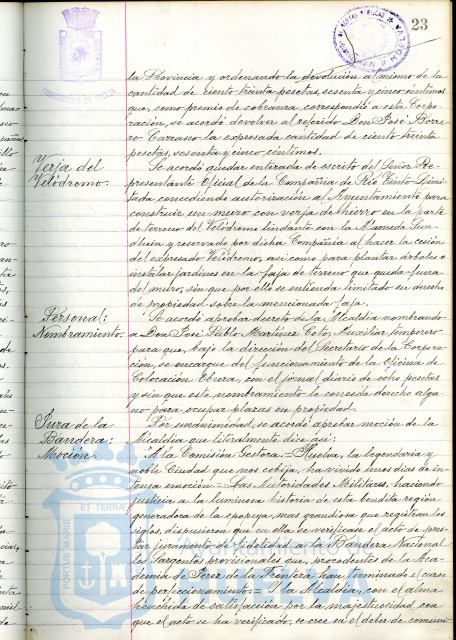 23
la Provincia y ordenando la devolución al mismo de la
cantidad de ciento treinta pesetas, sesenta y cinco céntimos
que, como premio de cobranza correspondió a esta Corpo-
ración, se acordó devolver al referido Don José Borre-
ro Carrasco la expresada cantidad de ciento treinta
pesetas, sesenta y cinco céntimos.
Verja del
Velódromo.
Se acordó quedar enterada de escrito del Señor Re-
presentante Oficial de la Compañía de Rio Tinto Limi-
tada concediendo autorización al Ayuntamiento para
construir un muro con verja de hierro en la parte
de terreno del Velódromo lindante con la Alameda Sun-
dheim y reservado por dicha Compañía al hacer la cesión
del expresado Velódromo, así como para plantar árboles o
instalar jardines en la faja de terreno que queda fuera
del muro, sin que por ello se entienda limitado su derecho
de propiedad sobre la mencionada faja.
Personal:
Nombramiento.
Se acordó aprobar decreto de la Alcaldía nombrando
a Don José Pablo Martínez Coto, Auxiliar temporero
para que, bajo la dirección del Secretario de la Corpora-
ción, se encargue del funcionamiento de la Oficina de
Colocación Obrera, con el jornal diario de ocho pesetas
y sin que este nombramiento le conceda derecho algu-
no para ocupar plazas en propiedad.
Jura de la
Bandera:
Moción.
Por unanimidad, se acordó aprobar moción de la
Alcaldía que literalmente dice así:
A la Comisión Gestora.= Huelva, la legendaria y
noble Ciudad que nos cobija, ha vivido unos dias de in-
tensa emoción.= Las Autoridades Militares, haciendo
justicia a la luminosa historia de esta bendita región
generadora de la epopeya mas grandiosa que registran los
siglos, dispusieron que en ella se verificase el acto de pres-
tar juramento de fidelidad a la Bandera Nacional
los Sargentos provisionales que, procedentes de la Aca-
demia de Jerez de la Frontera han terminado el curso
de perfeccionamiento.= Y la Alcaldía, con el alma
henchida de satisfacción por la majestuosidad con
que el acto se ha verificado, se cree en el deber de comuni-
PORTUS MARIS ET TERRAE
Ayuntamiento de
HUELVA